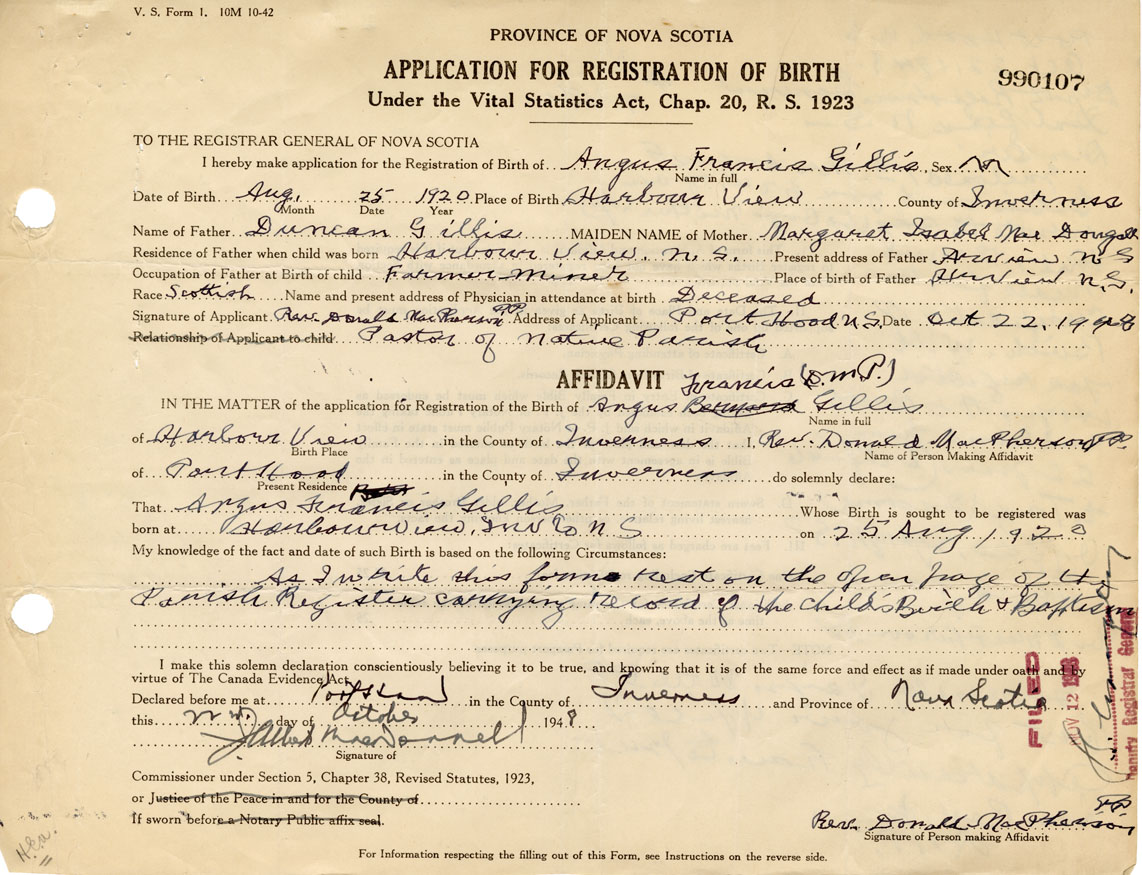 V. S. Form 1. 10M 10-42
PROVINCE OF NOVA SCOTIA
APPLICATION FOR REGISTRATION OF BIRTH
990107
Under the Vital Statistics Act, Chap. 20, R. S. 1923
TO THE REGISTRAR GENERAL OF NOVA SCOTIA
I hereby make application for the Registration of Birth of Angus Francis Gillis, Sex M
Name in full
Date of Birth Aug. 25 1920 Place of Birth Harbour View County of Inverness
Month Date Year
Name of Father Duncan Gillis MAIDEN NAME of Mother Margaret Isabel Mac Dougall
Residence of Father when child was born Harbour View, N. S. Present address of Father Hr View N S
Occupation of Father at Birth of child Farmer-Miner Place of birth of Father Hr View N.S.
Race Scottish Name and present address of Physician in attendance at birth Deceased
Signature of Applicant Rev. Donald MacPherson PP Address of Applicant Port Hood N.S. Date Oct 22, 1948
Relationship of Applicant to child Pastor of Native Parish
AFFIDAVIT Francis (D.M.P.)
IN THE MATTER of the application for Registration of the Birth of Angus Gillis
Name in full
of Harbour View in the County of Inverness I, Rev. Donald MacPherson PP.
Birth Place Name of Person Making Affidavit
of Port Hood in the County of Inverness do solemnly declare:
Present Residence
That Angus Francis Gillis Whose Birth is sought to be registered was
born at Harbour View, Inv Co N S on 25 Aug 1920
My knowledge of the fact and date of such Birth is based on the following Circumstances:
As I write this form rest on the open page of the
Parish Register carrying record of the child's Birth & Baptism
I make this solemn declaration conscientiously believing it to be true, and knowing that it is of the same force and effect as if made under oath and by
virtue of The Canada Evidence Act.
Declared before me at Port Hood in the County of Inverness and Province of Nova Scotia
this day of October 1948
J. Albert MacDonnell
Signature of
Commissioner under Section 5, Chapter 38, Revised Statutes, 1923,
or Justice of the Peace in and for the County of
If sworn before a Notary Public affix seal.
Rev. Donald MacPherson PP
Signature of Person making Affidavit
For Information respecting the filling out of this Form, see Instructions on the reverse side.
FILED
NOV 12 1948
Deputy Registrar General